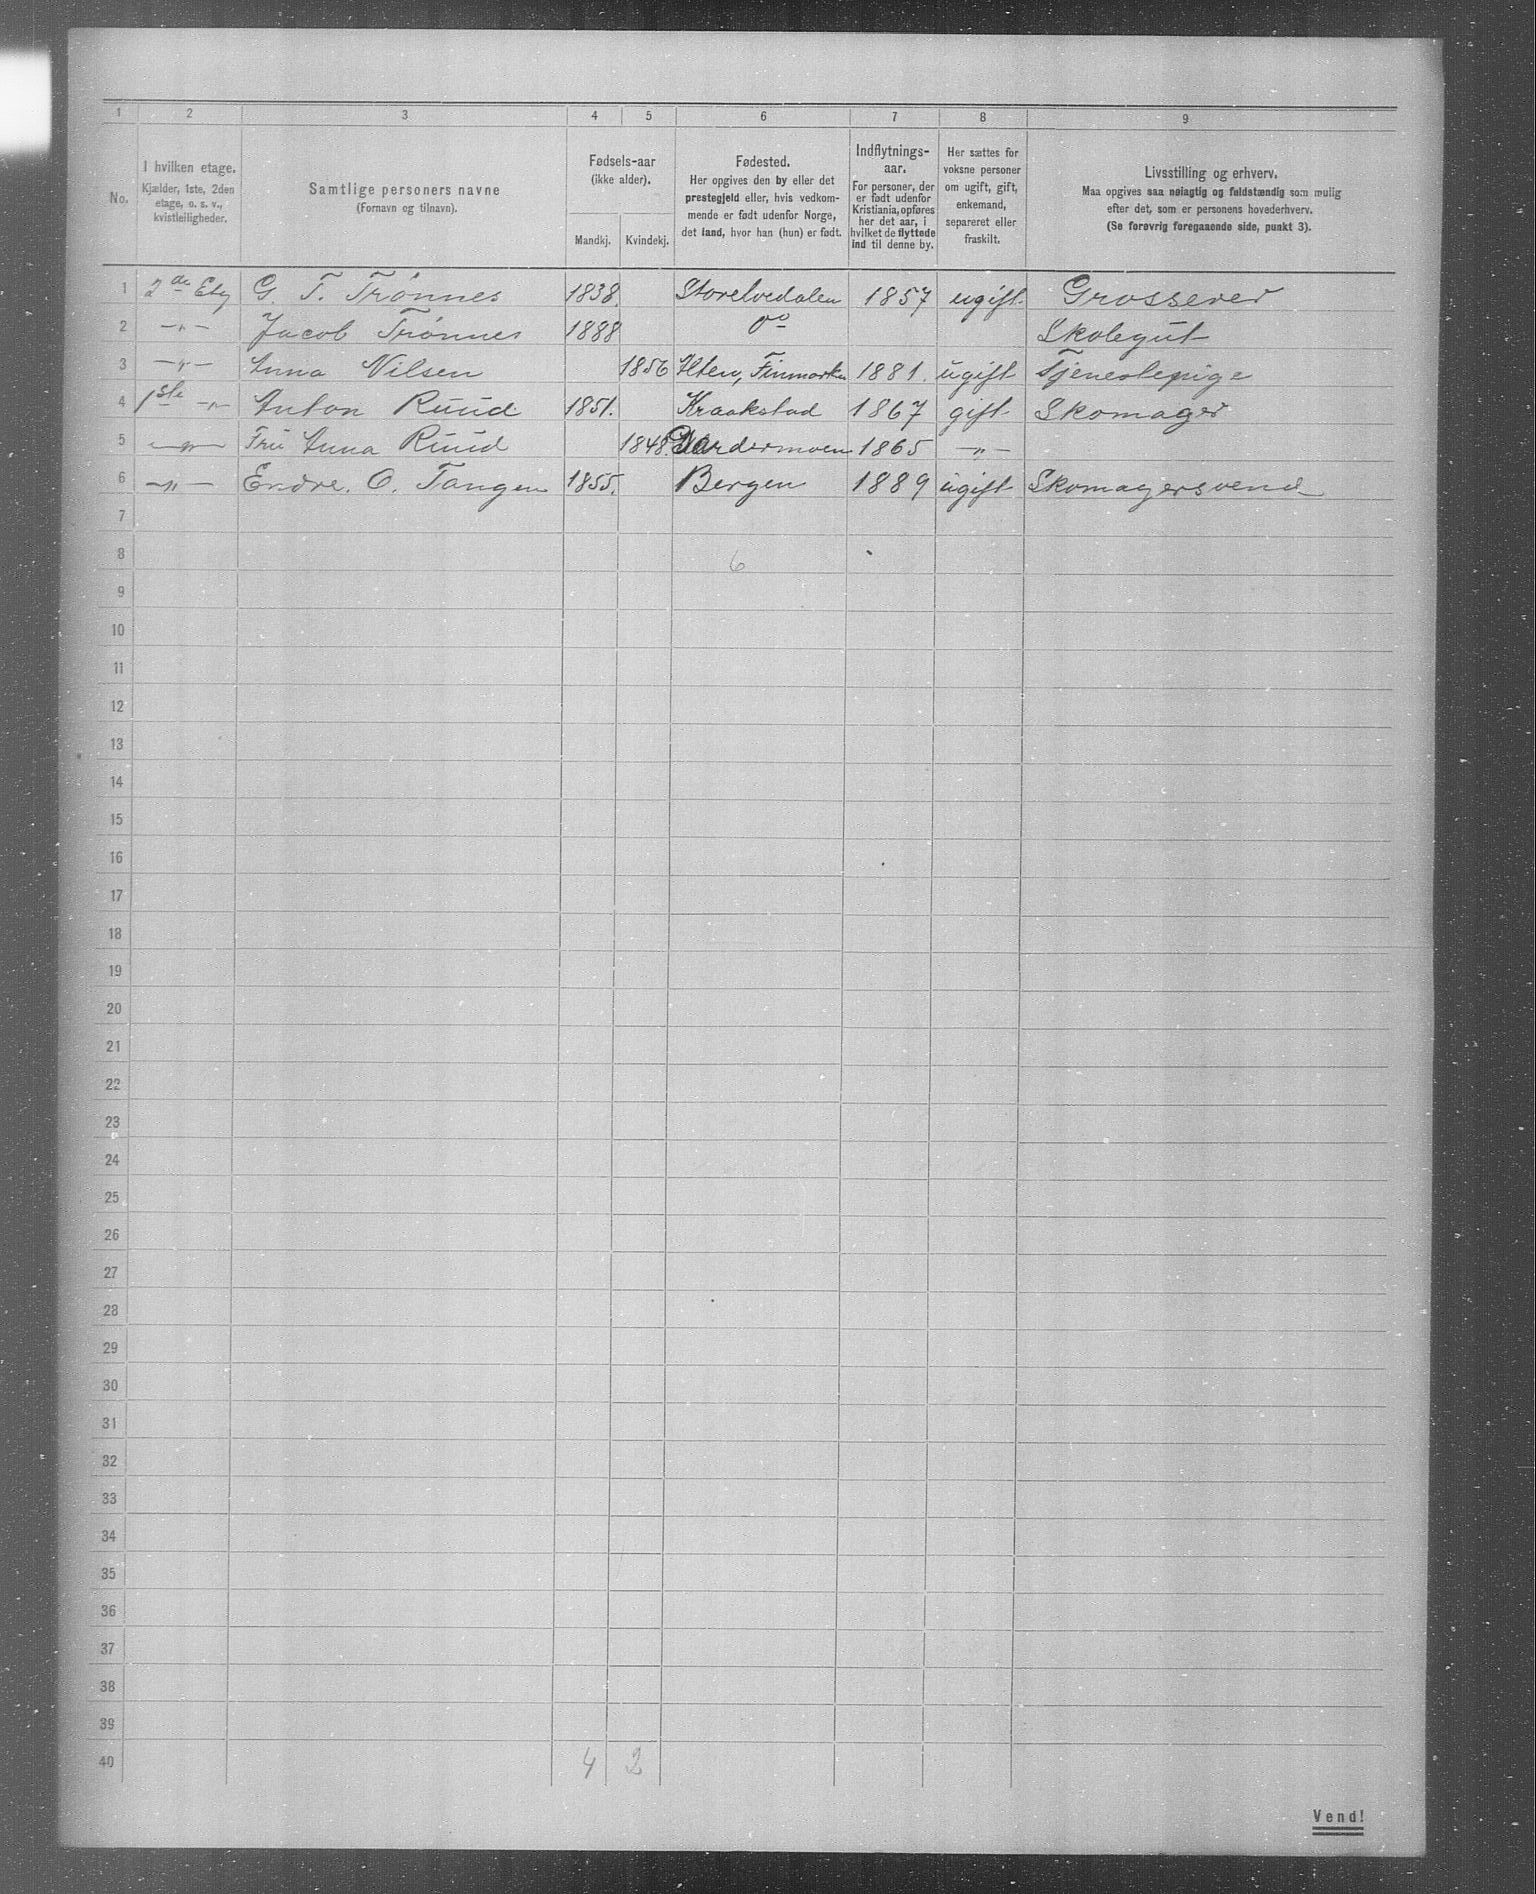 1 2 3 4 5 6 7 8 9
No.
I hvilken etage.
Kjælder, 1ste, 2den
etage, o. s. v.,
kvistleiligheder.
Samtlige personers navne
(Fornavn og tilnavn).
Fødsels-aar
(ikke alder).
Mandkj. Kvindekj.
Fødested.
Her opgives den by eller det
prestegjeld eller, hvis vedkom-
mende er født udenfor Norge,
det land, hvor han (hun) er født.
Indflytnings-
aar.
For personer, der
er født udenfor
Kristiania, opføres
her det aar, i
hvilket de flyttede
ind til denne by.
Her sættes for
voksne personer
om ugift, gift,
enkemand,
separeret eller
fraskilt.
Livsstilling og erhverv.
Maa opgives saa nøiagtig og fuldstændig som mulig
efter det, som er personens hovederhverv.
(Se forøvrig foregaaende side, punkt 3).
1 2de Etg G. T. Trønnes 1838. Storelvedalen 1857 ugift Grosserer
2 –"– Jacob Trønnes 1888 Do Skolegut
3 –"– Anna Nilsen 1856 Finmarken 1881. ugift Tjenestepige
4 1ste –"– Anton Ruud 1851. Kraakstad 1867 gift Skomager
5 –"– Fru Anna Ruud 1848. Gardermoen 1865 –"–
6 –"– Endre. O. Tangen 1855. Bergen 1889 ugift Skomagersvend
7
8 6
9
10
11
12
13
14
15
16
17
18
19
20
21
22
23
24
25
26
27
28
29
30
31
32
33
34
35
36
37
38
39
40 4 2
Vend!